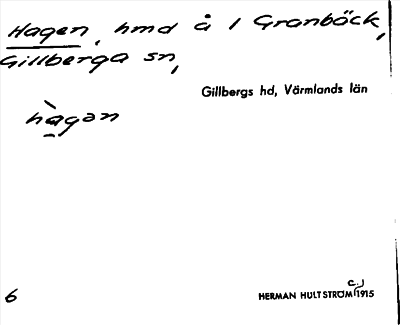 Hagen, hmd å 1 Granbäck,
Gillberga sn,
Gillbergs hd, Värmlands län
hàgan
6
HERMAN HULTSTRÖM c.1915